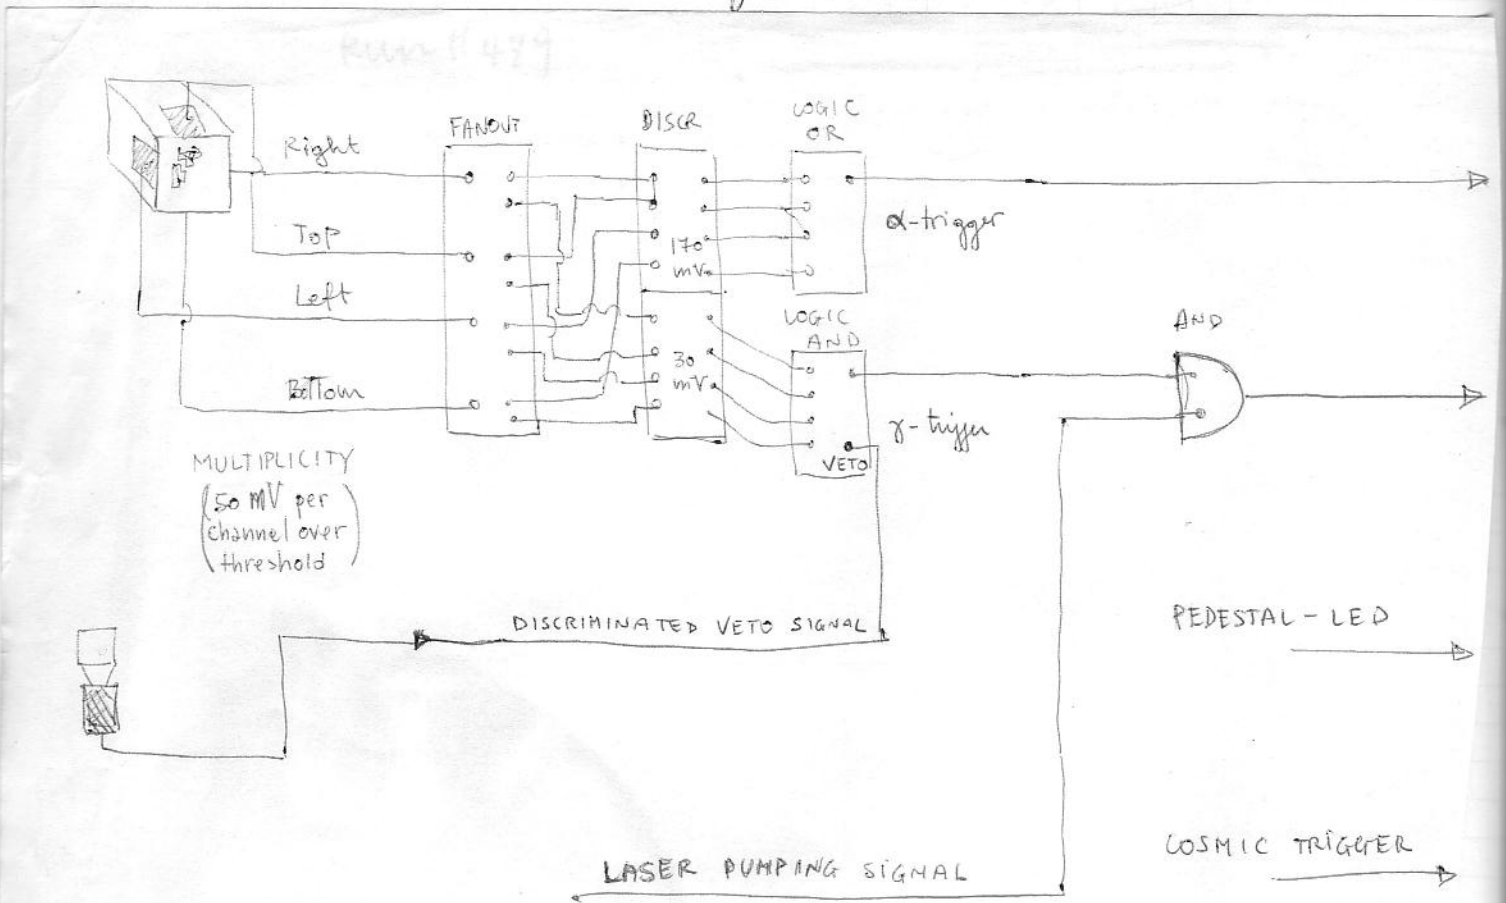 Run # 479
FANOUT
DISCR
LOGIC
OR
Right
Top
Left
Bottom
170
mV
30
mV
α-trigger
LOGIC
AND
VETO
γ-trigger
AND
MULTIPLICITY
(50 mV per
channel over
threshold)
DISCRIMINATED VETO SIGNAL
PEDESTAL-LED
LASER PUMPING SIGNAL
COSMIC TRIGGER